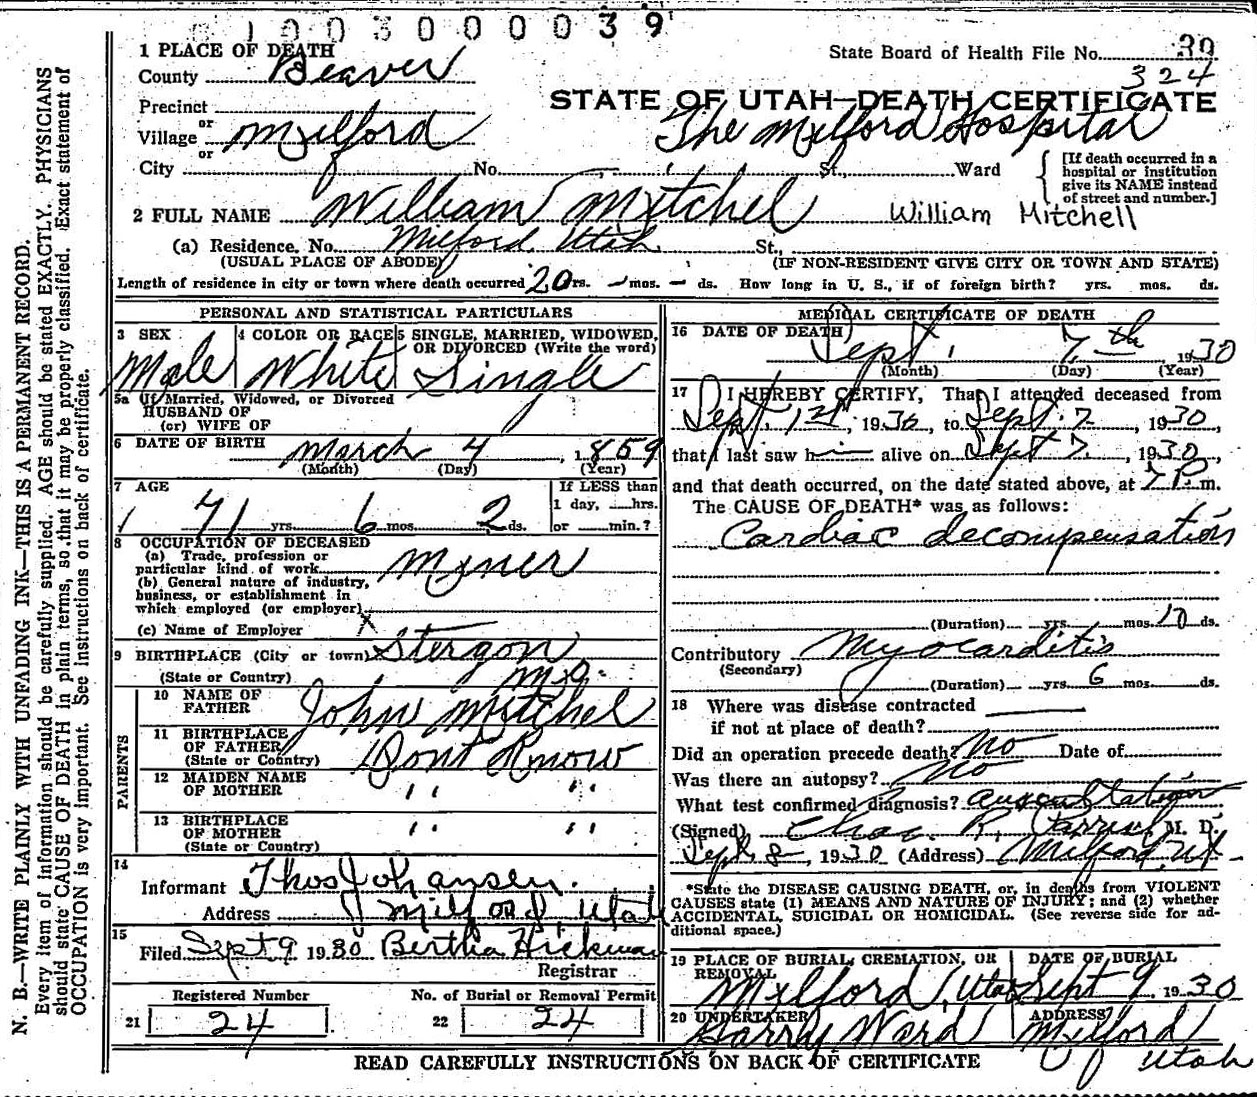 1003000039
1 PLACE OF DEATH
State Board of Health File No. 39
County Beaver
324
STATE OF UTAH—DEATH CERTIFICATE
Precinct
or
Village Milford The Milford Hospital
or
City No. St., Ward
[If death occurred in a hospital or institution give its NAME instead of street and number.]
2 FULL NAME William Mitchel William Mitchell
(a) Residence. No. Milford Utah St.,
(USUAL PLACE OF ABODE) (IF NON-RESIDENT GIVE CITY OR TOWN AND STATE)
Length of residence in city or town where death occurred 20 yrs. — mos. — ds. How long in U. S., if of foreign birth? yrs. mos. ds.
PERSONAL AND STATISTICAL PARTICULARS
3 SEX 4 COLOR OR RACE 5 SINGLE, MARRIED, WIDOWED,
OR DIVORCED (Write the word)
Male White Single
5a If Married, Widowed, or Divorced
HUSBAND OF
(or) WIFE OF
6 DATE OF BIRTH March 4, 1859
(Month) (Day) (Year)
7 AGE If LESS than
1 day, hrs.
71 yrs. 6 mos. 2 ds. or min.?
8 OCCUPATION OF DECEASED
(a) Trade, profession or
particular kind of work Miner
(b) General nature of industry,
business, or establishment in
which employed (or employer)
(c) Name of Employer X
9 BIRTHPLACE (City or town) Stergon
(State or Country)
PARENTS
10 NAME OF
FATHER John Mitchel
11 BIRTHPLACE
OF FATHER Dont Know
(State or Country)
12 MAIDEN NAME
OF MOTHER " "
13 BIRTHPLACE
OF MOTHER " "
(State or Country)
14
Informant Thos Johansen.
Address Milford, Utah
15
Filed Sept 9 1930 Bertha Hickman
Registrar
Registered Number No. of Burial or Removal Permit
21 24 22 24
MEDICAL CERTIFICATE OF DEATH
16 DATE OF DEATH Sept. 7th 1930
(Month) (Day) (Year)
17 I HEREBY CERTIFY, That I attended deceased from
Sept. 1st, 1930, to Sept. 7, 1930,
that I last saw h— alive on Sept 7, 1930,
and that death occurred, on the date stated above, at 7 P. m.
The CAUSE OF DEATH* was as follows:
Cardiac decompensation
(Duration) yrs. mos. 10 ds.
Contributory Myocarditis
(Secondary)
(Duration) yrs. 6 mos. ds.
18 Where was disease contracted
if not at place of death?
Did an operation precede death? No Date of
Was there an autopsy? No
What test confirmed diagnosis? Auscultation
(Signed) Chas. R. Parrish, M. D.
Sept. 8 1930 (Address) Milford, Ut.
*State the DISEASE CAUSING DEATH, or, in deaths from VIOLENT
CAUSES state (1) MEANS AND NATURE OF INJURY; and (2) whether
ACCIDENTAL, SUICIDAL OR HOMICIDAL. (See reverse side for ad-
ditional space.)
19 PLACE OF BURIAL, CREMATION, OR DATE OF BURIAL
REMOVAL
Milford, Utah Sept 9 1930
20 UNDERTAKER ADDRESS
Harry Ward Milford
Utah
READ CAREFULLY INSTRUCTIONS ON BACK OF CERTIFICATE
N. B.—WRITE PLAINLY WITH UNFADING INK—THIS IS A PERMANENT RECORD.
Every item of information should be carefully supplied. AGE should be stated EXACTLY. PHYSICIANS
should state CAUSE OF DEATH in plain terms, so that it may be properly classified. Exact statement of
OCCUPATION is very important. See instructions on back of certificate.